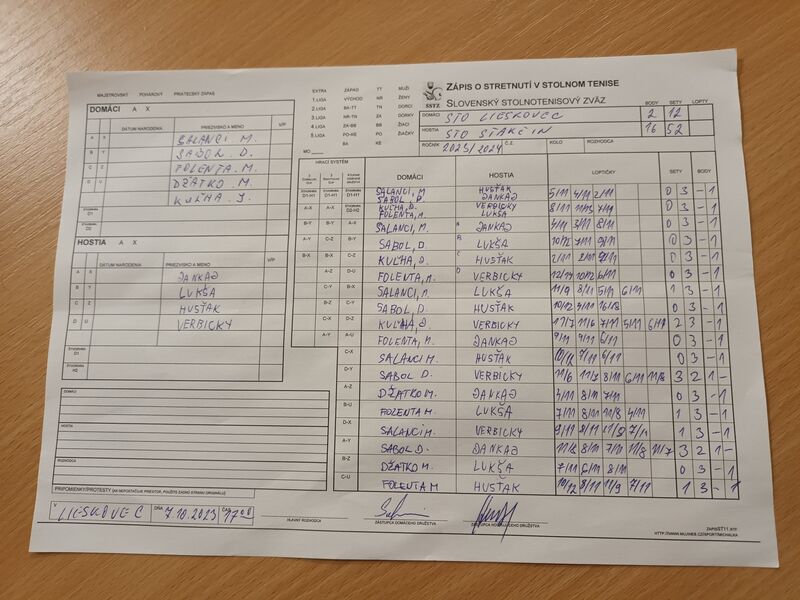 MAJSTROVSKÝ POHÁROVÝ PRIATEĽSKÝ ZÁPAS
DOMÁCI A X
DÁTUM NARODENIA PRIEZVISKO A MENO V/P
A X SALANCI M.
B Y SABOL D.
C Z FOLENTA M.
D U DŽATKO M.
KUĽHA J.
ŠTVORHRA D1
D2
HOSTIA A X
DÁTUM NARODENIA PRIEZVISKO A MENO V/P
A X DANKAJ
B Y LUKŠA
C Z HUSŤAK
D U VERBICKY
ŠTVORHRA D1
H2
DOMÁCI
HOSTIA
ROZHODCA
PRIPOMIENKY/PROTESTY (AK NEPOSTAČUJE PRIESTOR, POUŽITE ZADNÚ STRANU ORIGINÁLU)
V LIESKOVEC DŇA 7.10.2023 17:00
HLAVNÝ ROZHODCA
ZÁSTUPCA DOMÁCEHO DRUŽSTVA
ZÁSTUPCA HOSŤUJÚCEHO DRUŽSTVA
EXTRA ZÁPAD TT MUŽI
1.LIGA VÝCHOD NR ŽENY
2.LIGA BA-TT TN DORCI
3.LIGA NR-TN ZA DORKY
4.LIGA ZA-BB BB ŽIACI
5.LIGA PO-KE PO ŽIAČKY
MO BA KE
SSTZ
ZÁPIS O STRETNUTÍ V STOLNOM TENISE
SLOVENSKÝ STOLNOTENISOVÝ ZVÄZ
BODY SETY LOPTY
DOMÁCI STO LIESKOVEC 2 12
HOSTIA STO STAKČIN 16 52
ROČNÍK 2023/2024 Č.Z. KOLO ROZHODCA
HRACÍ SYSTÉM DOMÁCI HOSTIA LOPTIČKY SETY BODY
SALANCI, M HUSŤAK 5/11 4/11 2/11 0 3 - 1
SABOL, D. DANKAJ
KUĽHA, J. VERBICKY 8/11 11/13 7/11 0 3 - 1
FOLENTA, M. LUKŠA
SALANCI, M. A DANKAJ 4/11 3/11 8/11 0 3 - 1
SABOL, D. B LUKŠA 10/12 7/11 9/11 0 3 - 1
KUĽHA, J. C HUSŤAK 2/11 8/11 9/11 0 3 - 1
FOLENTA, M. D VERBICKY 12/14 10/12 6/11 0 3 - 1
SALANCI, M. LUKŠA 11/9 8/11 5/11 6/11 1 3 - 1
SABOL D HUSŤAK 10/12 4/11 16/18 0 3 - 1
KUĽHA, J. VERBICKY 11/7 11/6 7/11 5/11 6/11 2 3 - 1
FOLENTA, M. DANKAJ 9/11 4/11 6/11 0 3 - 1
SALANCI M. HUSŤAK 10/12 7/11 6/11 0 3 - 1
SABOL D. VERBICKY 11/6 11/7 8/11 6/11 11/8 3 2 1 -
DŽATKO M. DANKAJ 3/11 8/11 7/11 0 3 - 1
FOLENTA M. LUKŠA 7/11 8/11 11/8 4/11 1 3 - 1
SALANCI M. VERBICKY 9/11 8/11 11/9 7/11 1 3 - 1
SABOL D. DANKAJ 11/8 8/11 7/11 11/8 11/7 3 2 1 -
DŽATKO M. LUKŠA 7/11 6/11 8/11 0 3 - 1
FOLENTA M HUSŤAK 10/12 8/11 11/9 7/11 1 3 - 1
ZAPISST11.RTF